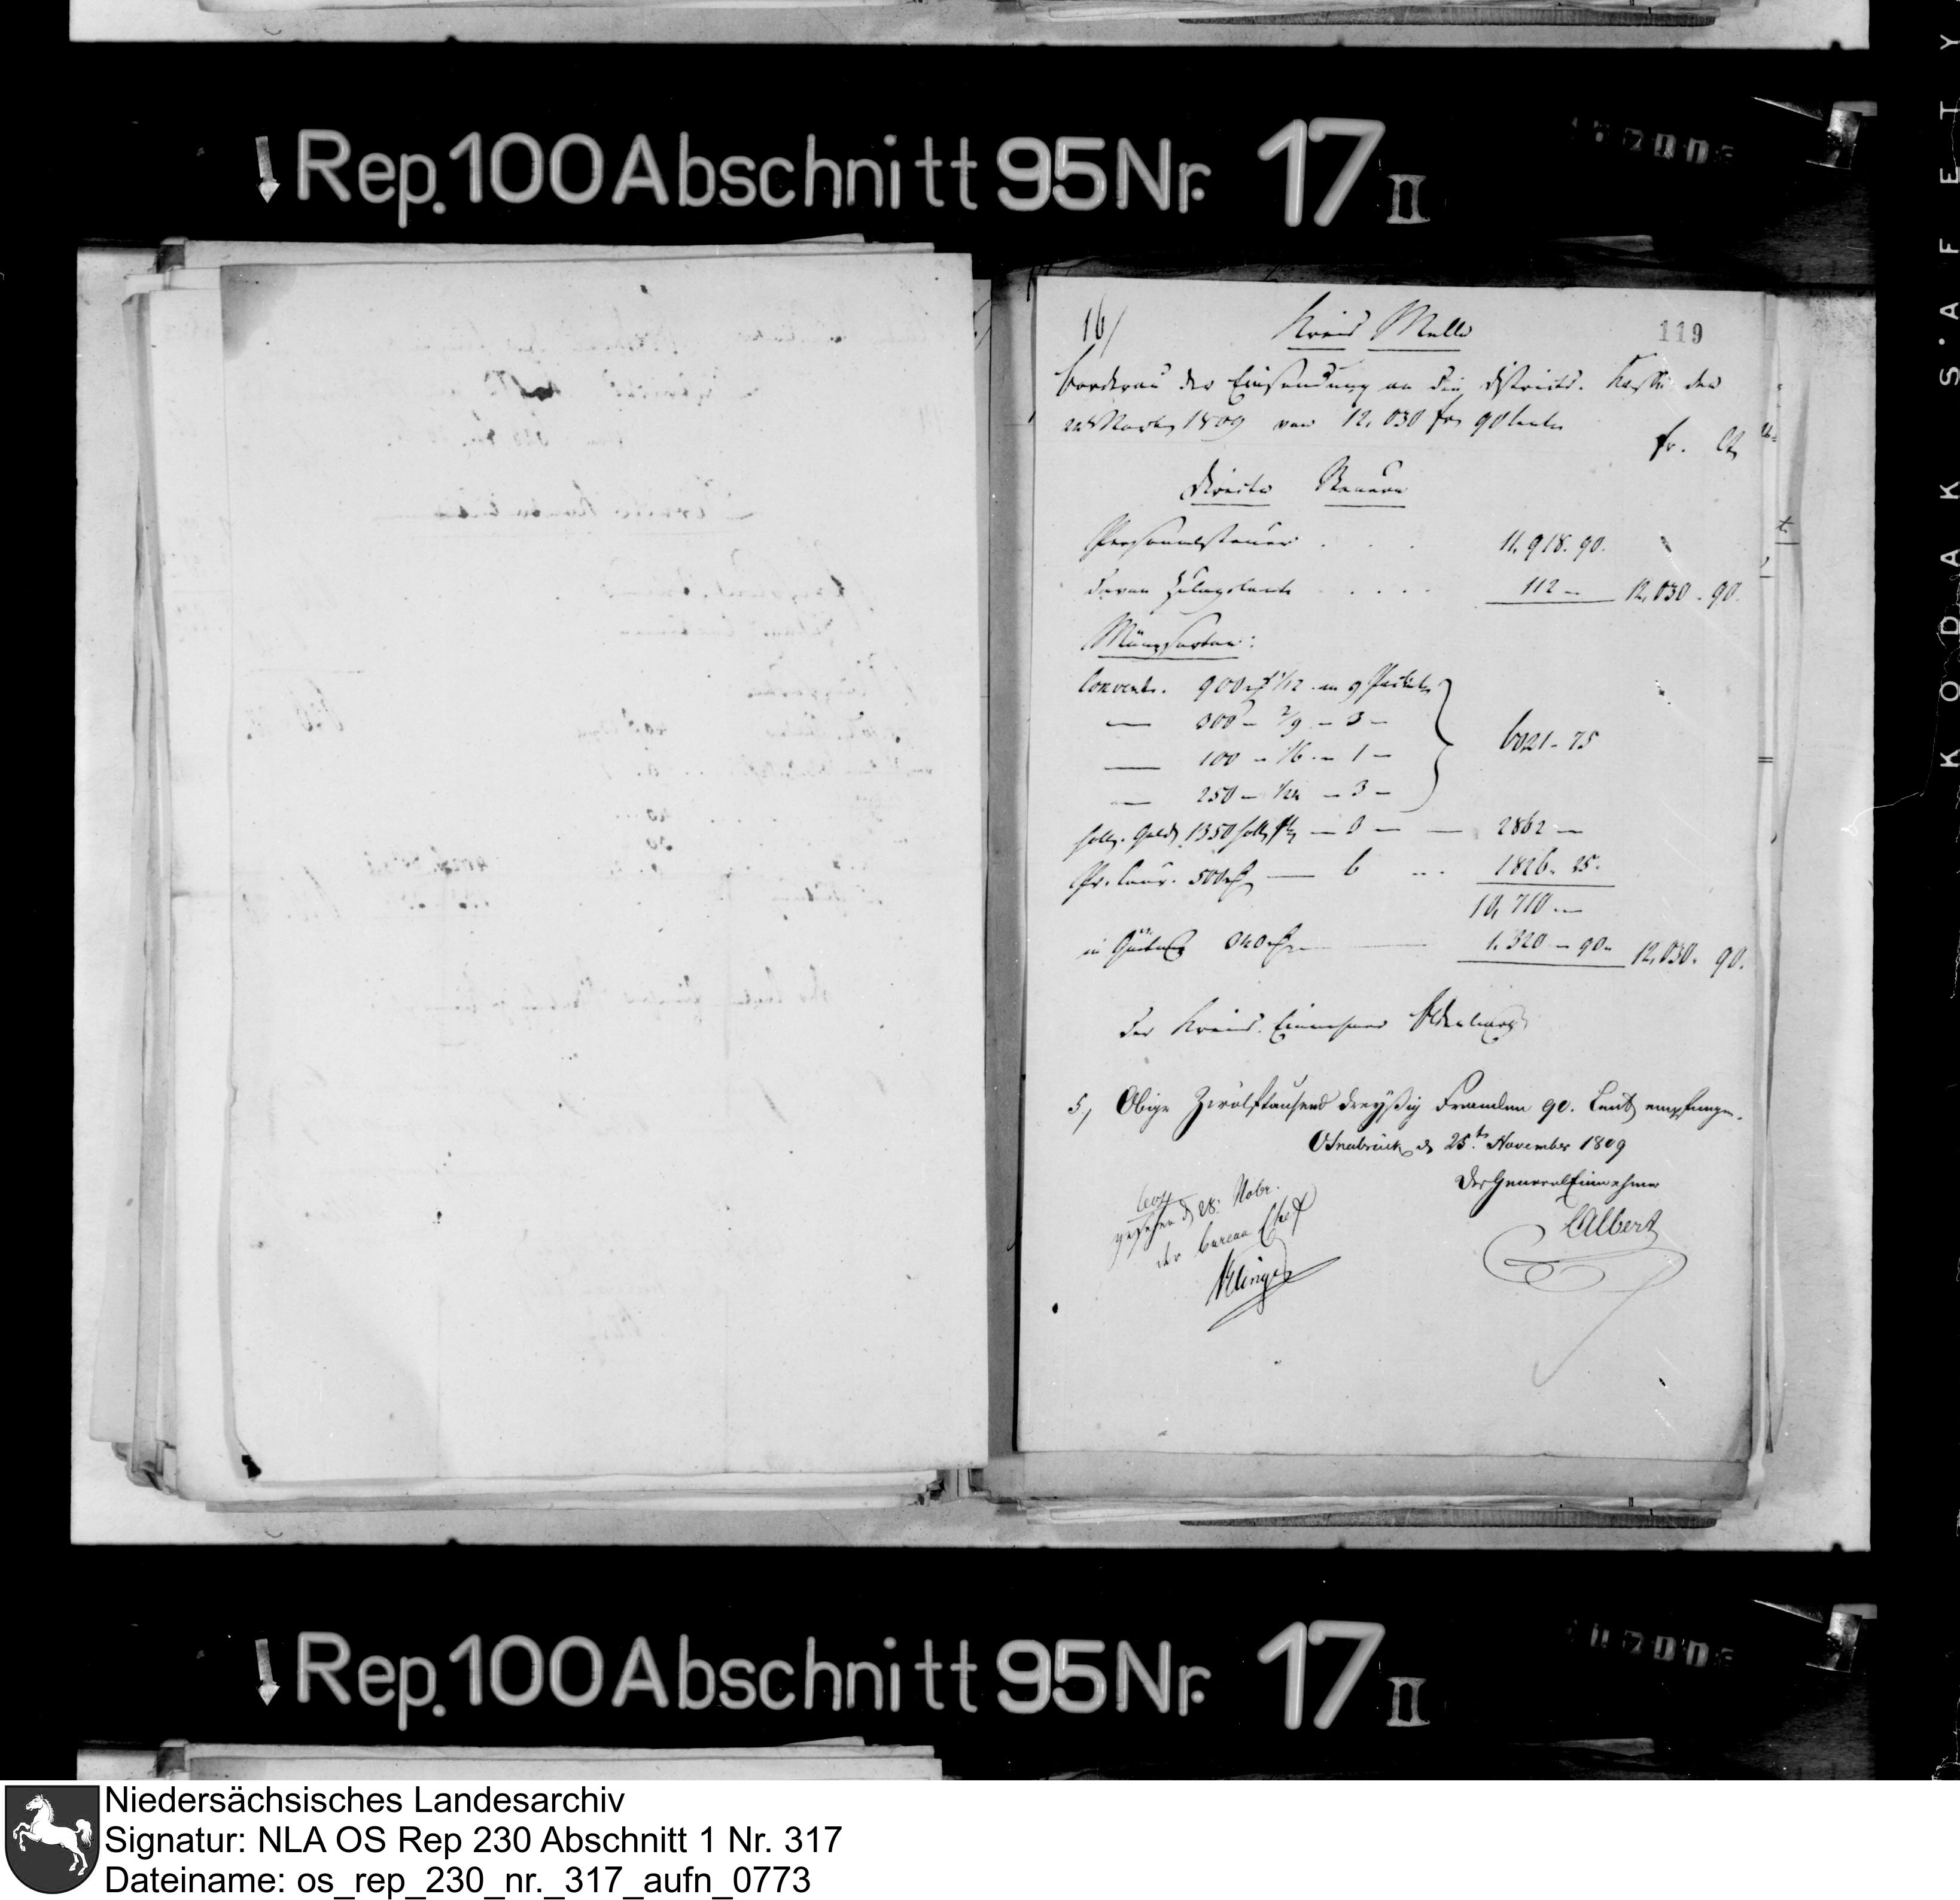 ↓ Rep. 100 Abschnitt 95 Nr. 17 II
16/ Kreis Melle 119
Borderau der Einsendung an die Districts. Kasse den
Novbr 1809 von 12,030 frs 90 Cents
fr. Cts
Directe Steuern
Personalsteuer . . . 11,918. 90.
davon Zulagscents . . . . 112 - 12,030 - 90.
Münzsorten:
Convent. 900 rth 1/12 in 9 Packete
— 300 - 2/9 - 3 -
— 100 - 1/6 - 1 -
— 250 - 1/24 - 3 -
6021 - 75
holl. Geld 1350 holl. fl — 0 — — 2862 —
Pr. Cour. 500 rth — 6 1826. 25.
10,710 —
in 340 rth — 1,320 - 90 - 12,030. 90.
der Kreis. Einnehmer
5, Obige Zwölftausend dreyßig Franken 90. Cent empfangen.
Osnabrück d 25t. November 1809
Der General Einnehmer
CAlbert
gesehen d 28. Nobr.
der bureau Chef
↓ Rep. 100 Abschnitt 95 Nr. 17 II
KODAK S.AFETY
Niedersächsisches Landesarchiv
Signatur: NLA OS Rep 230 Abschnitt 1 Nr. 317
Dateiname: os_rep_230_nr._317_aufn_0773